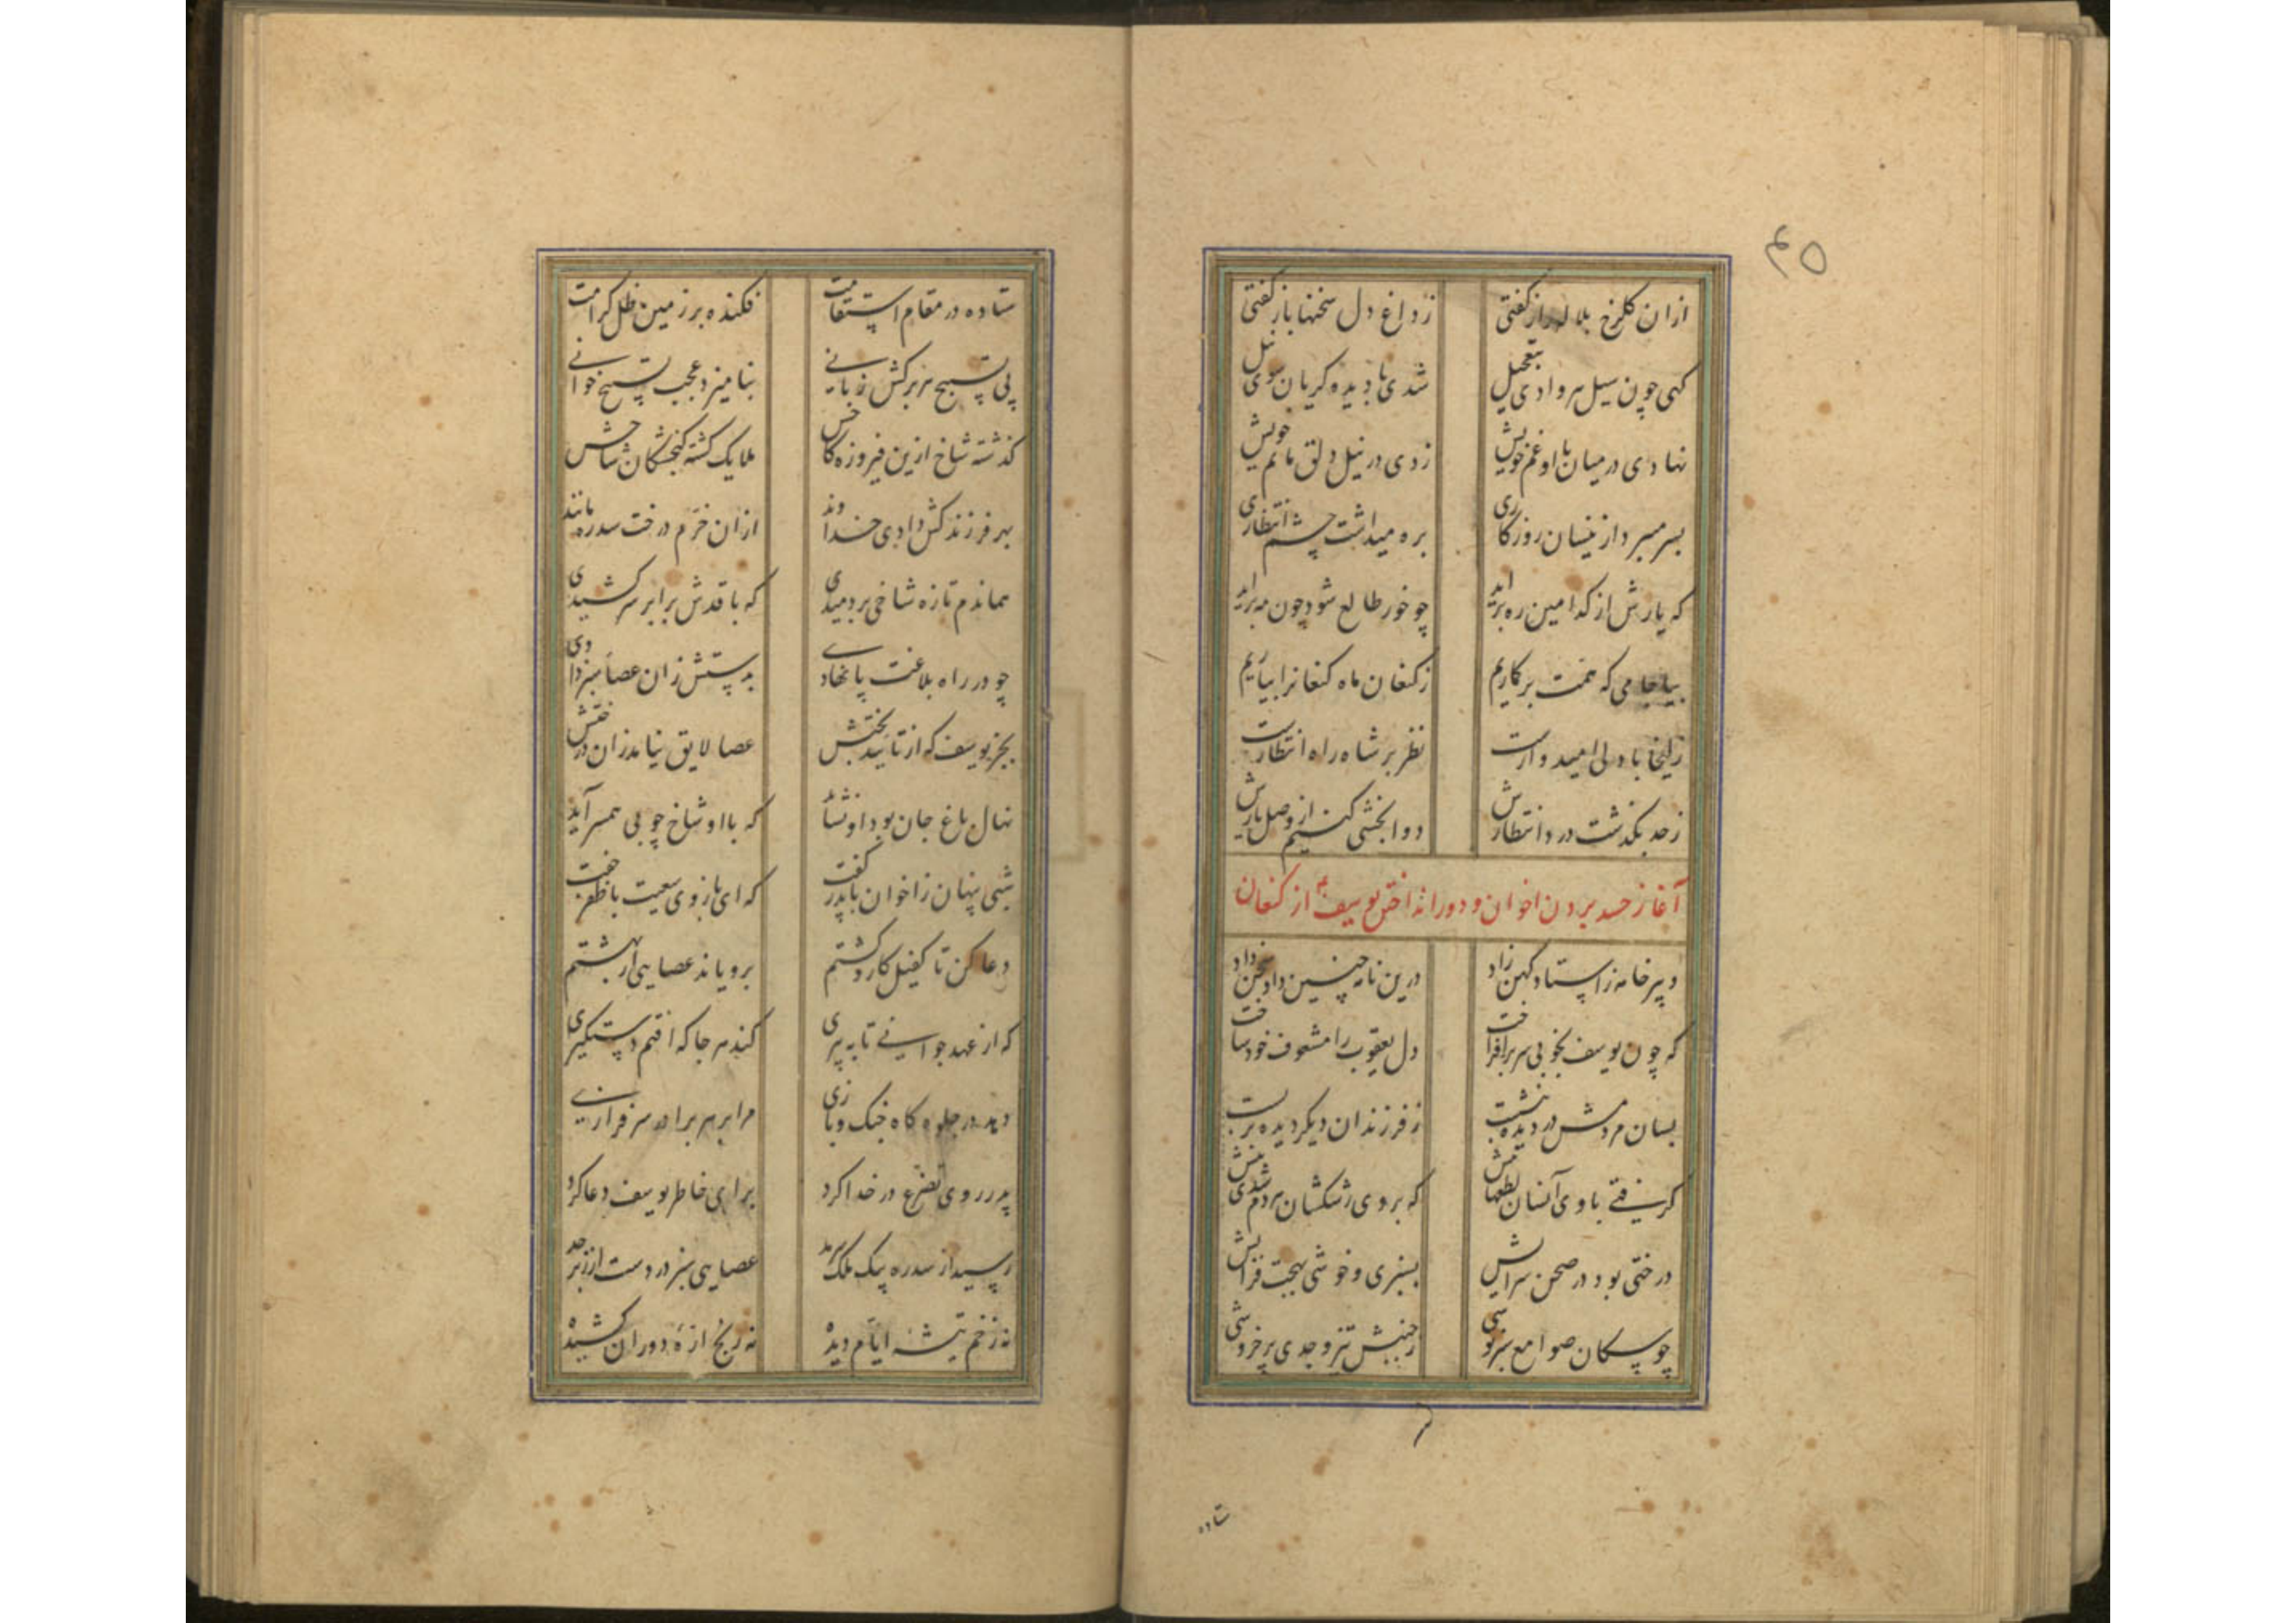 ۴۵
ازان گلرخ بلاله راز گفتی زداغ دل سخنها باز گفتی
گهی چون سیل هر وادی بتعجیل شدی با دیده گریان سوی نیل
نهادی در میان با او غم خویش زدی در نیل دلق ماتم خویش
بسر میبرد ازینسان روزگاری بره میداشت چشم انتظاری
که یارش از کدامین ره برآید چو خور طالع شود چون مه برآید
بیا جامی که همت برگماریم زکنعان ماه کنعانرا بیاریم
زلیخا با دلی امیدوارست نظر بر شاه راه انتظارست
زحد بگذشت درد انتظارش دوابخشی کنیم از وصل یارش
آغاز حسد بردن اخوان و دور انداختن یوسف ع از کنعان
دبیر خامه ز استاد کهن زاد درین نامه چنین داد سخن داد
که چون یوسف بخوبی سر برافراخت دل یعقوب را مشعوف خود ساخت
بسان مردمش در دیده بنشست ز فرزندان دیگر دیده بربست
گرفتی با وی آنسان لطفهایش که بر وی رشکشان هردم شدی بیش
درختی بود در صحن سرایش بسبزی و خوشی بهجت فزایش
چو سکان صوامع سبزپوشی زجنبش تیز وجدی پر خروشی
ستاده
ستاده در مقام استقامت فکنده بر زمین ظل کرامت
پی تسبیح هر برگش زبانی بنامیزد عجب تسبیح خوانی
گذشته شاخ ازین فیروزه کاخش ملایک گشته گنجشکان شاخش
بهر فرزند کش دادی خداوند ازان خرم درخت سدره مانند
هماندم تازه شاخی بردمیدی که با قدش برابر سر کشیدی
چو در راه بلاغت پا نهادی بدستش زان عصا سبز دادی
بجز یوسف که از تایید بختش عصا لایق نیامد زان درختش
نهال باغ جان بود او نشاید که با او شاخ چوبی همسر آید
شبی پنهان ز اخوان با پدر گفت که ای بازوی سعیت با ظفر جفت
دعا کن تا کفیل کار و کشتم برویاند عصایی از بهشتم
که از عهد جوانی تا به پیری کند هر جا که افتم دستگیری
دهد در جلوه گاه جنگ و بازی مرا بر هر برادر سرفرازی
پدر روی تضرع در خدا کرد برای خاطر یوسف دعا کرد
رسید از سدره پیک ملک سرمد عصایی سبز در دست از زبرجد
نه زخم تیشه ایام دیده نه رنج اره دوران کشیده